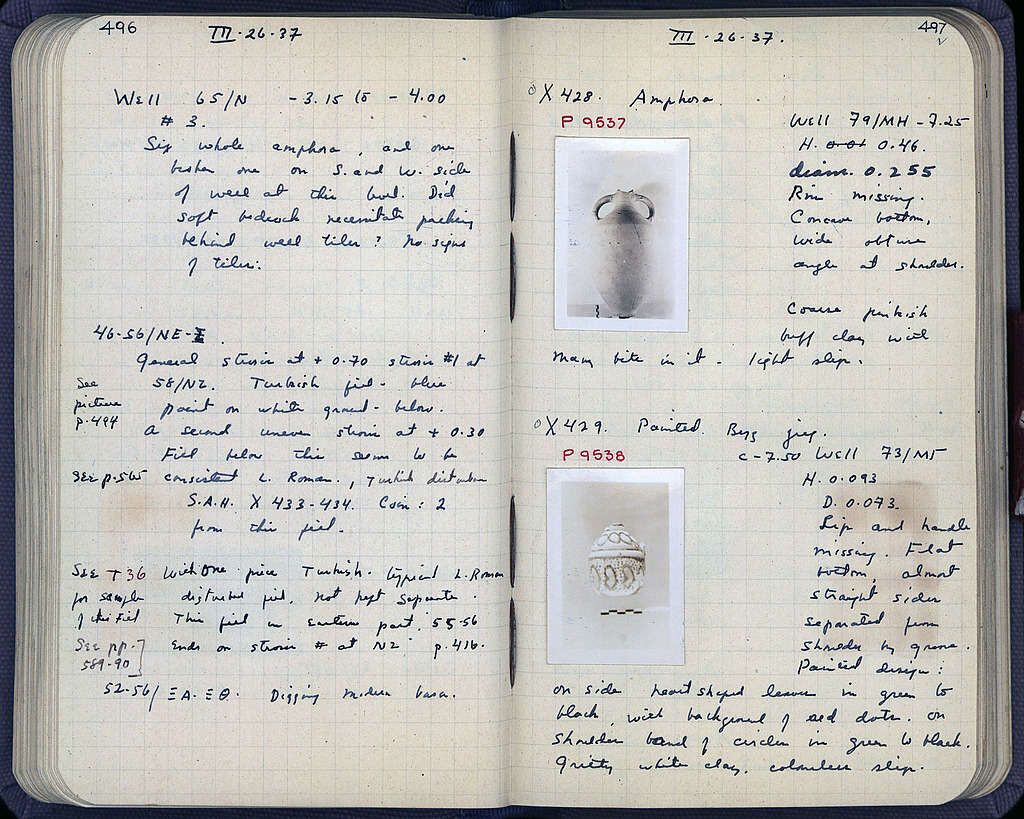 496
III·26·37
Well 65/N -3.15 to -4.00
# 3.
Six whole amphora, and one
broken one on S. and W. side
of well at this level. Did
soft bedrock necessitate packing
behind well tiles? No signs
of tiles.
46-56/NE-Ξ.
General strosis at +0.70 strosis #1 at
See 58/NZ. Turkish fill - blue
picture paint on white ground - below.
p.494
A second uneven strosis at +0.30
Fill below this seems to be
See p.565 consistent L. Roman., Turkish disturbance
S.A.H. X 433-434. Coin: 2
from this fill.
See T36 With one piece Turkish. typical L. Roman
for sample disturbed fill. Not kept separate.
of this fill This fill in Eastern part. 55-56
See pp. Ends on strosis # at NZ p.416.
589-90
52-56/ΞA-ΞΘ. Digging modern
497
III·26·37.
X 428. Amphora.
P 9537
Well 79/MH -7.25
H. 0.46.
diam. 0.255
Rim missing.
Concave bottom,
wide obtuse
angle at shoulder.
Coarse pinkish
buff clay with
many bits in it - light slip.
X 429. Painted Byz jug.
P 9538
c-7.50 Well 73/MΣΤ
H. 0.093
D. 0.073.
Lip and handle
missing. Flat
bottom, almost
straight sides
separated from
shoulder by groove.
Painted design:
on side heart shaped leaves in green to
black, with background of red dots. on
shoulder band of circles in green to black.
Gritty white clay. colourless slip.